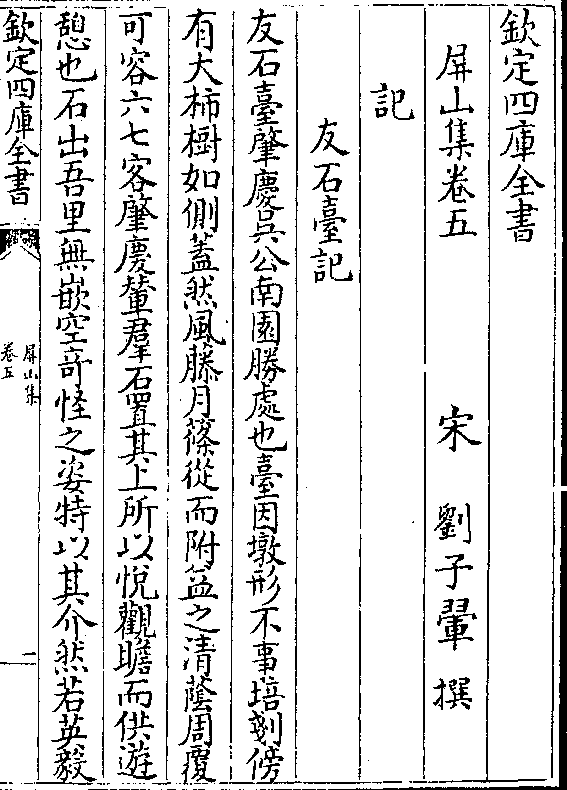 欽定四庫全書
屏山集卷五
宋 劉子翬 撰
記
友石臺記
友石臺肇慶吳公南園勝處也臺因墩形不事培剗傍
有大柿樹如側蓋然風藤月篠從而附益之清蔭周覆
可容六七客肇慶輦羣石置其上所以悅觀瞻而供遊
憩也石出吾里無嵌空奇怪之姿特以其介然若英毅
欽定四庫全書
屏山集
卷五
一